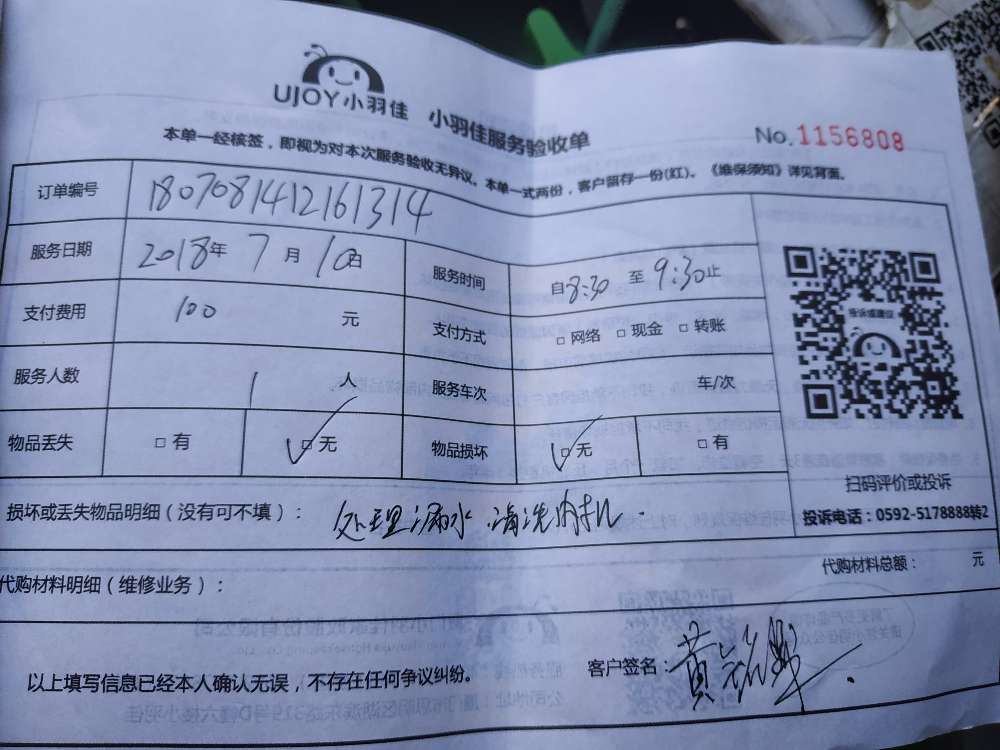 UJOY小羽佳 小羽佳服务验收单
No.1156808
本单一经核签，即视为对本次服务验收无异议。本单一式两份，客户留存一份(红)。《维保须知》详见背面。
订单编号 1807081412161314
服务日期 2018年7月10日 服务时间 自8:30至9:30止
支付费用 100元 支付方式 □网络 □现金 □转账
服务人数 1人 服务车次 车/次
物品丢失 □有 □无 物品损坏 □无 □有
投诉或建议
扫码评价或投诉
投诉电话：0592-5178888转2
损坏或丢失物品明细（没有可不填）： 处理漏水 清洗内机.
代购材料明细（维修业务）： 代购材料总额： 元
以上填写信息已经本人确认无误，不存在任何争议纠纷。 客户签名：黄